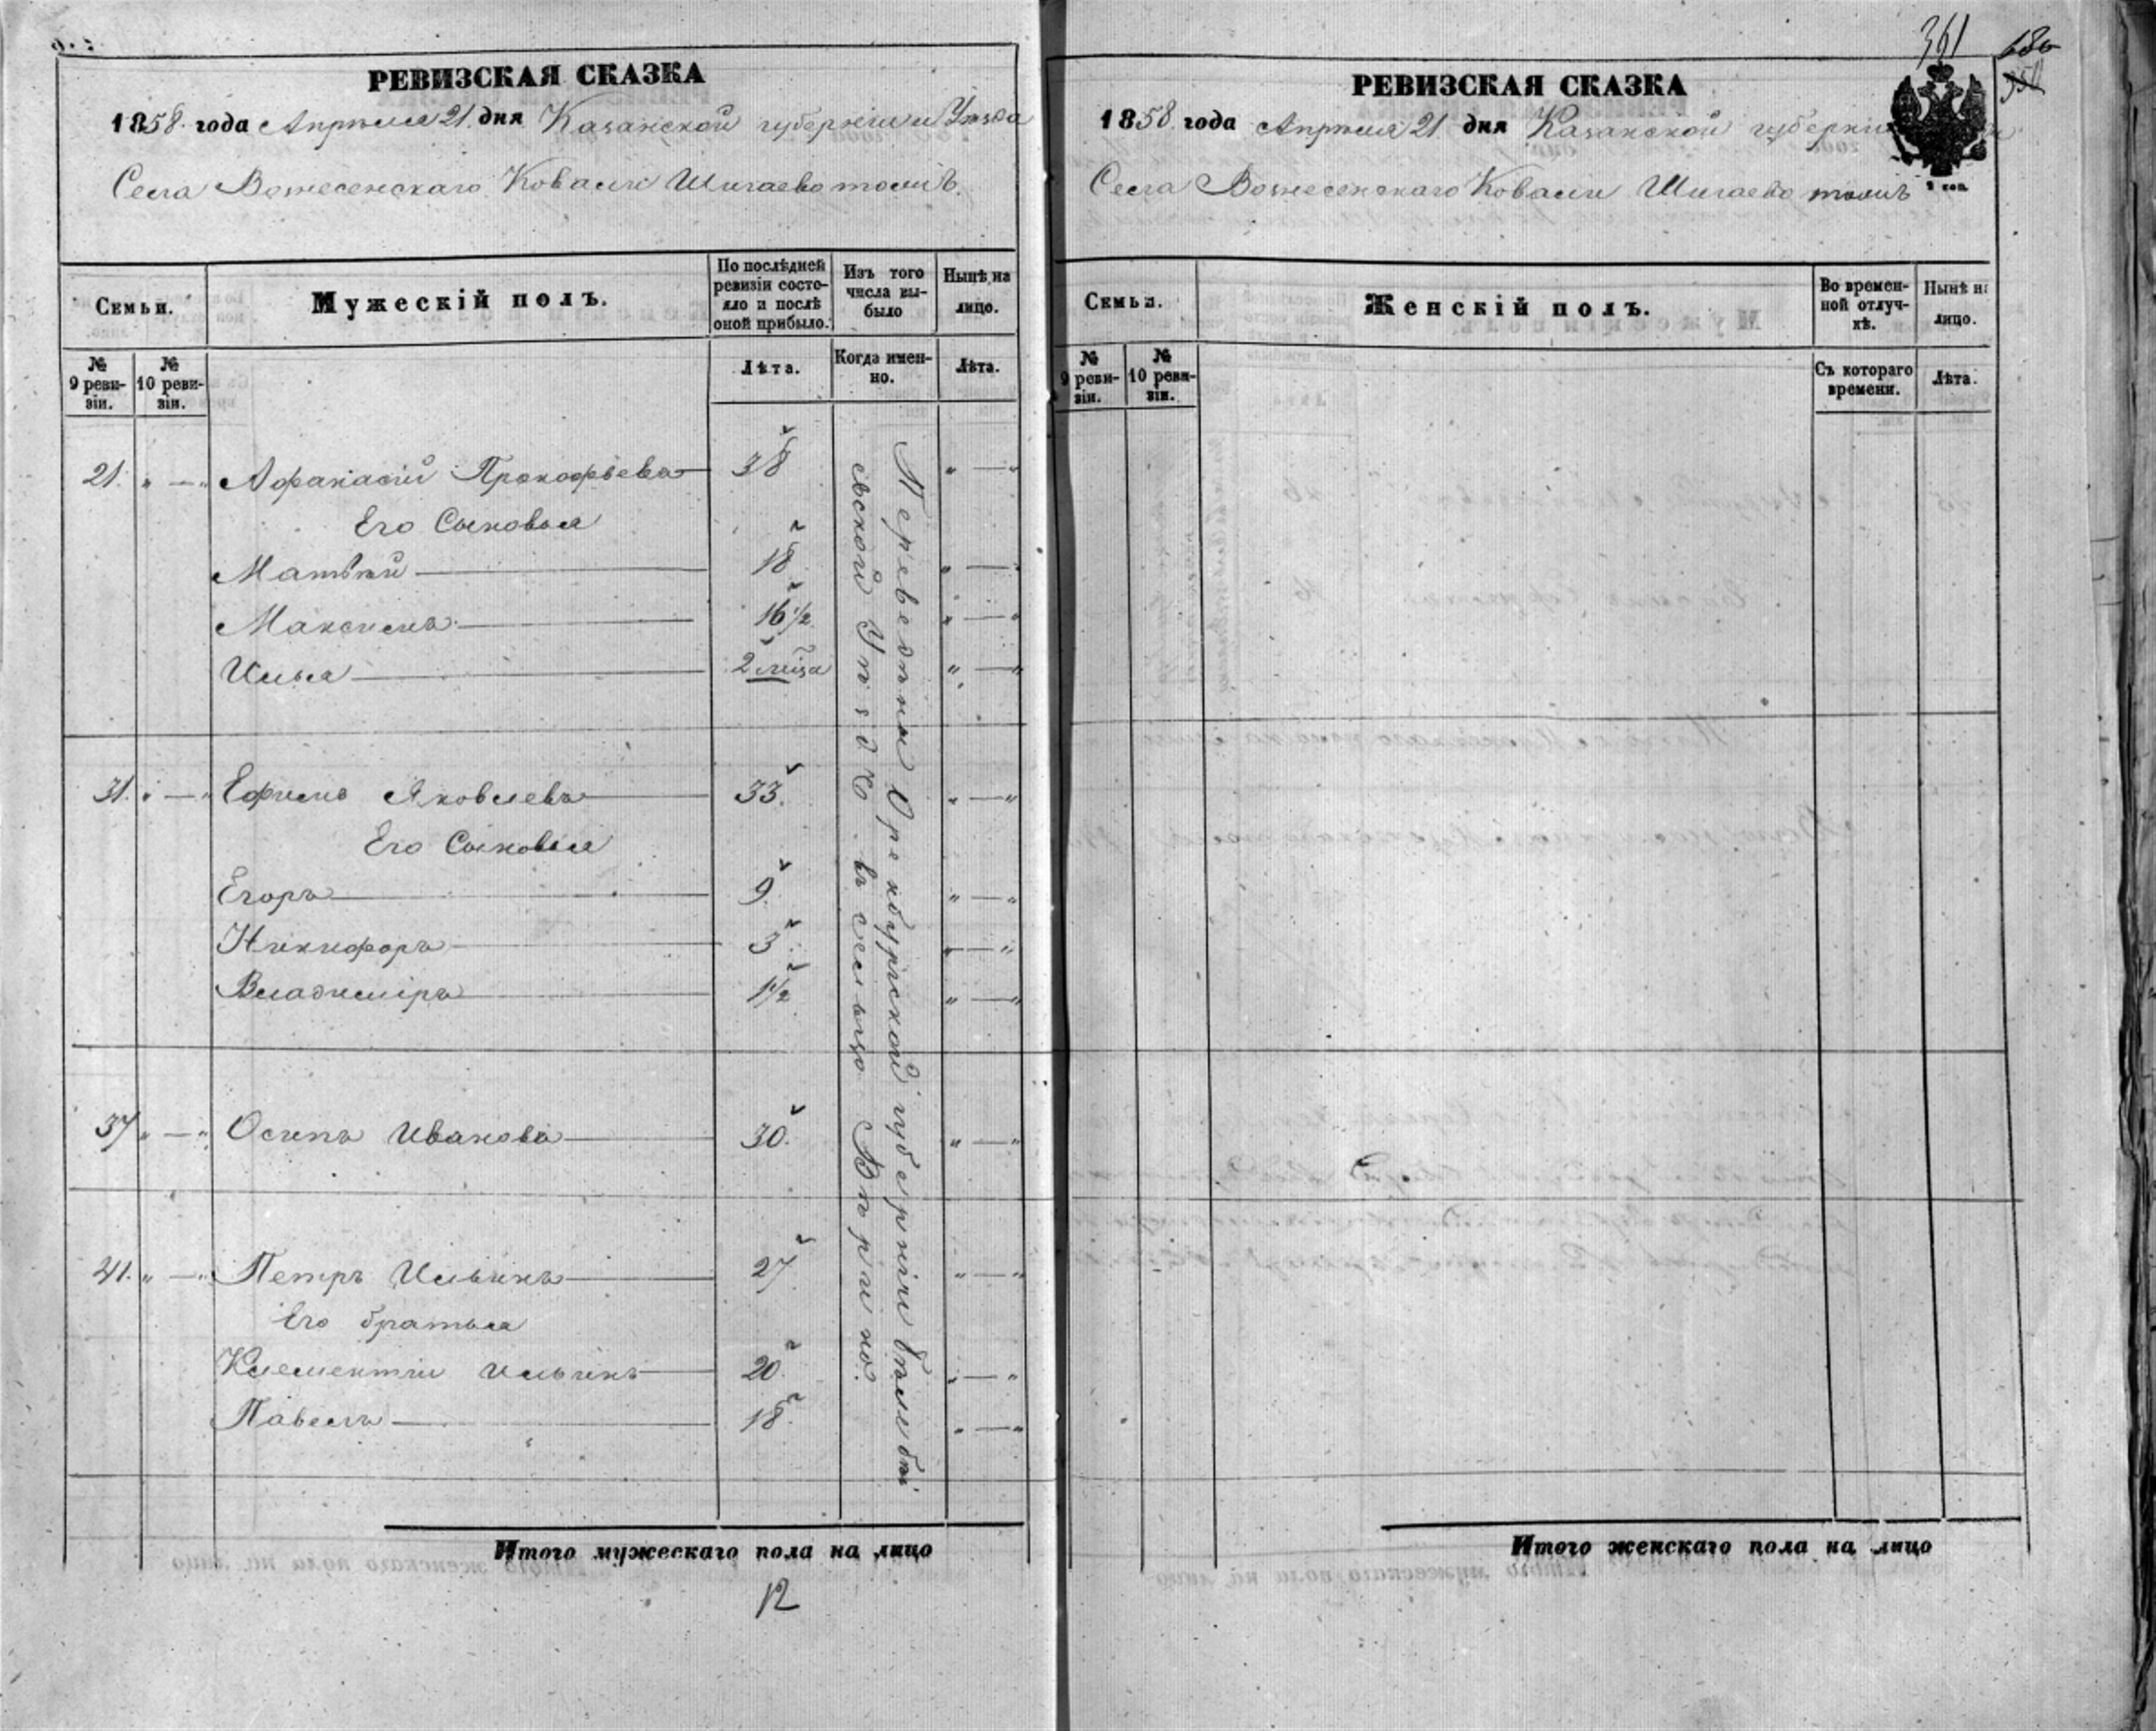 РЕВИЗСКАЯ СКАЗКА
1858 года Апрѣля 21 дня Казанской губерніи и Уѣзда
Села Вознесенскаго Ковали Шигаево тожъ.
Семьи.
Мужескій полъ.
По послѣдней ревизіи состояло и послѣ оной прибыло.
Изъ того числа выбыло
Нынѣ на лицо.
№ 9 ревизіи.
№ 10 ревизіи.
Лѣта.
Когда именно.
Лѣта.
21. " — " Афанасій Прокофьевъ 38 " — "
Его Сыновья
Матвѣй 18 " — "
Максимъ 16 1/2 " — "
Илья 2 мѣца " — "
31. " — " Ефимъ Яковлевъ 33. " — "
Его Сыновья
Егоръ 9 " — "
Никифоръ 3 " — "
Владиміръ 1 1/2 " — "
37 " — " Осипъ Ивановъ 30. " — "
41. " — " Петръ Ильинъ 27 " — "
Его братья
Клементій Ильинъ 20 " — "
Павелъ 18 " — "
Переведены Оренбургской губерніи Бѣлебѣ
евской Уѣздъ въ сельцо
Итого мужескаго пола на лицо
12
361
РЕВИЗСКАЯ СКАЗКА
1858 года Апрѣля 21 дня Казанской губерніи
Села Вознесенскаго Ковали Шигаево тожъ
Семьи.
Женскій полъ.
Во временной отлучкѣ.
Нынѣ на лицо.
№ 9 ревизіи.
№ 10 ревизіи.
Съ котораго времени.
Лѣта.
Итого женскаго пола на лицо